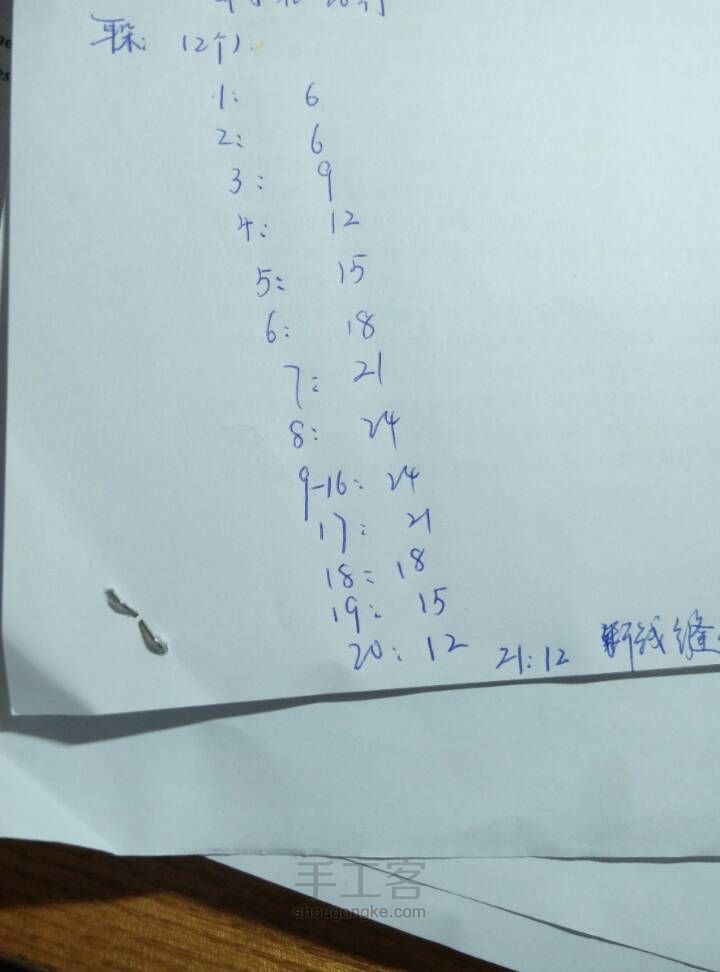 耳朵: (2个)
1: 6
2: 6
3: 9
4: 12
5: 15
6: 18
7: 21
8: 24
9-16: 24
17: 21
18: 18
19: 15
20: 12 21:12 断线缝
手工客
shougongke.com